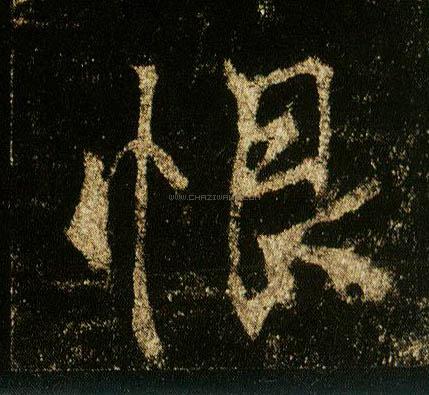 恨
WWW.CHAZIWANG.COM